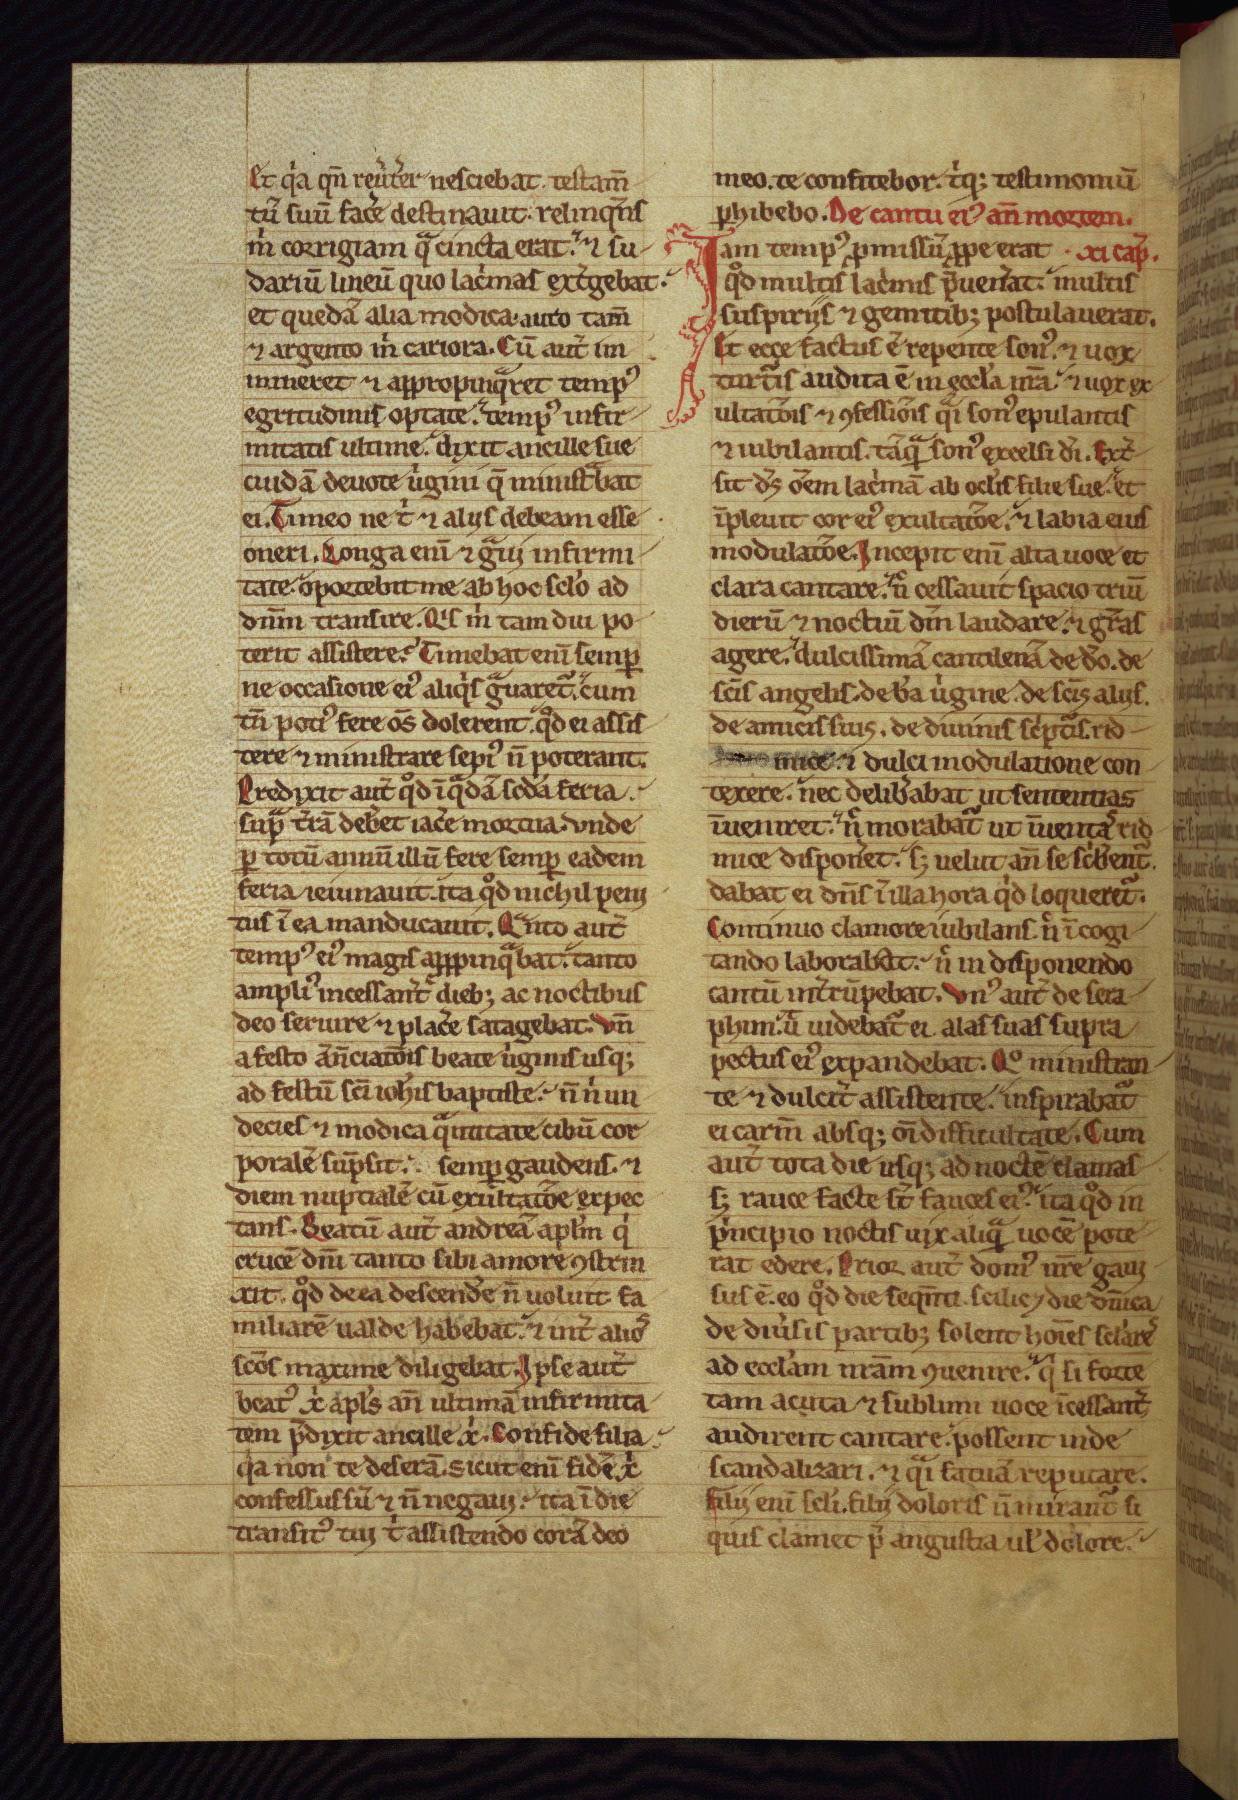 Et q̾a qn̄ reuͥteͬr nesciebat. testam̄
tū suū facͤe destinauit. relinqn̄s
m̾ corrigiam qͣ cincta erat. ⁊ su
dariū lineū quo lacͥmas ext̾gebat.
et quedā alia modica. auro tam̄
⁊ argento m̾ cariora. Cū aut̾ im
mineret ⁊ appropinqͣret tempꝰ
egritudinis optate. tempꝰ infir
mitatis ultime. dixit ancille sue
cuidā deuote uͥgini q̄ minist̾bat
ei. Timeo ne tͥ ⁊ alijs debeam esse
oneri. Longa enī ⁊ gͣui infirmi
tate oportebit me ab hoc sclo ad
dnm̄ transire. Qͥs mͥ tam diu po
terit assistere. Timebat enī semꝑ
ne occasione eiꝰ aliqͥs gͣuaret̾. cum
tn̄ potiꝰ fere oēs dolerent. qͦd ei assis
tere ⁊ ministrare sepiꝰ n̄ poterant.
Predixit aut̾ qͦd ī qͣdā scda feria
supͣ t̾rā deberet iacͤe mortua. vnde
ꝑ totū annū illū fere semꝑ eadem
feria ieiunauit. ita qͦd nichil peni
tus ī ea manducauit. Qͣnto aut̾
tempꝰ eiꝰ magis appͣpinqͣbat. tanto
ampliꝰ incessant̾ dieb; ac noctibus
deo seruire ⁊ placͤe satagebat. Vn̄
a festo ān̄ciatōis beate uͥginis usq;
ad festū scī ioħis baptiste. n̄ n̾ un
decies ⁊ modica qͣntitate cibū cor
poralē sūpsit. semꝑ gaudens. ⁊
diem nuptialē cū exultatōe expec
tans. Beatū aut̾ andreā apl̄m qͥ
crucē dn̄i tanto sibi amore ꝯstrin
xit. qͦd de ea descendͤe n̄ uoluit. fa
miliarē ualde habebat. ⁊ int̾ alios
scōs maxime diligebat. Ipse aut̾
beatꝰ x̾ apl̄s an̄ ultimā infirmita
tem p̄dixit ancille x̾. Confide filia
qͥa non te deserā. sicut enī fidē x̾
confessus sū ⁊ n̄ negaui. ita ī die
transitꝰ tui tͥ assistendo corā deo
meo. te confitebor. tͥq; testimoniū
ꝑhibebo. De cantu eiꝰ an̄ mortem.
xi cap̄.
Iam tempꝰ ꝓmissū ꝓpe erat
qͦd multis lacͥmis p̄uenerat. multis
suspirijs ⁊ gemitib; postulauerat.
Et ecce factus ē repente sonꝰ. ⁊ uox
turt̾is audita ē in eccl̄a nr̄a. ⁊ uox ex
ultatōis ⁊ ꝯfessiōis qͣi sonꝰ epulantis
⁊ iubilantis. tāqͣ sonꝰ excelsi dī. Ext̾
sit ds̄ oēm lacͥmā ab oclīs filie sue. et
īpleuit cor eiꝰ exultatōe. ⁊ labia eius
modulatōe. Incepit enī alta uoce et
clara cantare. n̄ cessauit spacio triū
dierū ⁊ noctiū dm̄ laudare. ⁊ gr̄as
agere. dulcissimā cantilenā de dō. de
scīs angelis. de bͥa uͥgine. de scīs alijs.
de amicis suis. de diuinis scͥptis. rid
mice. ⁊ dulci modulatione con
texere. nec delibͤabat ut sententias
īueniret. n̾ morabat̾ ut īuenta rid
mice disponͤet. s; uelut an̄ se scͥbent̾.
dabat ei dn̄s ī illa hora qͥd loqueret̾.
Continuo clamore iubilans. n̾ ī cogi
tando laborabat. n̾ in disponendo
cantū int̾rūpebat. Vnꝰ aut̾ de sera
phim. ut̾ uidebat̾ ei alas suas supra
pectus eiꝰ expandebat. Qͦ ministran
te ⁊ dulcit̾ assistente. inspirabat̾
ei carm̄ absq; oī difficultate. Cum
aut̾ tota die usq; ad noctē clamas
s; rauce facte st̄ fauces eiꝰ. ita qͦd in
pͥncipio noctis uix aliqͣ uocē pote
rat edere. Prior aut̾ domꝰ nr̄e gaui
sus ē. eo qͦd die seqn̄ti. scilic; die dn̄ica
de diuͤsis partib; solent hoīes sclares
ad eccl̄am nr̄am ꝯuenire. qͥ si forte
tam acuta ⁊ sublimi uoce īcessant̾
audirent cantare. possent inde
scandalizari. ⁊ qͣi fatuā reputare.
Filij enī scli. filij doloris n̄ mirant̾ si
quis clamet p̄ angustia ul̾ dolore.